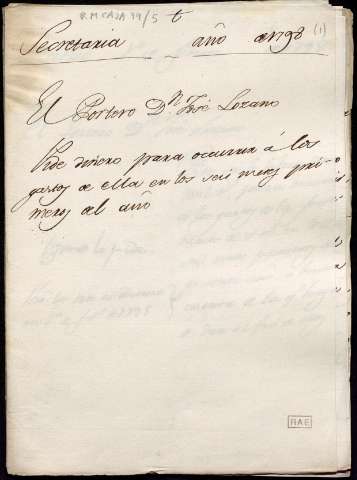 RM CAJA 19/5
t
(1)
Secretaria año de 1798
El Portero Dn. José Lozano
Pide dinero para ocurrir á los
gastos de ella en los seis meses pri-
meros del año
RAE